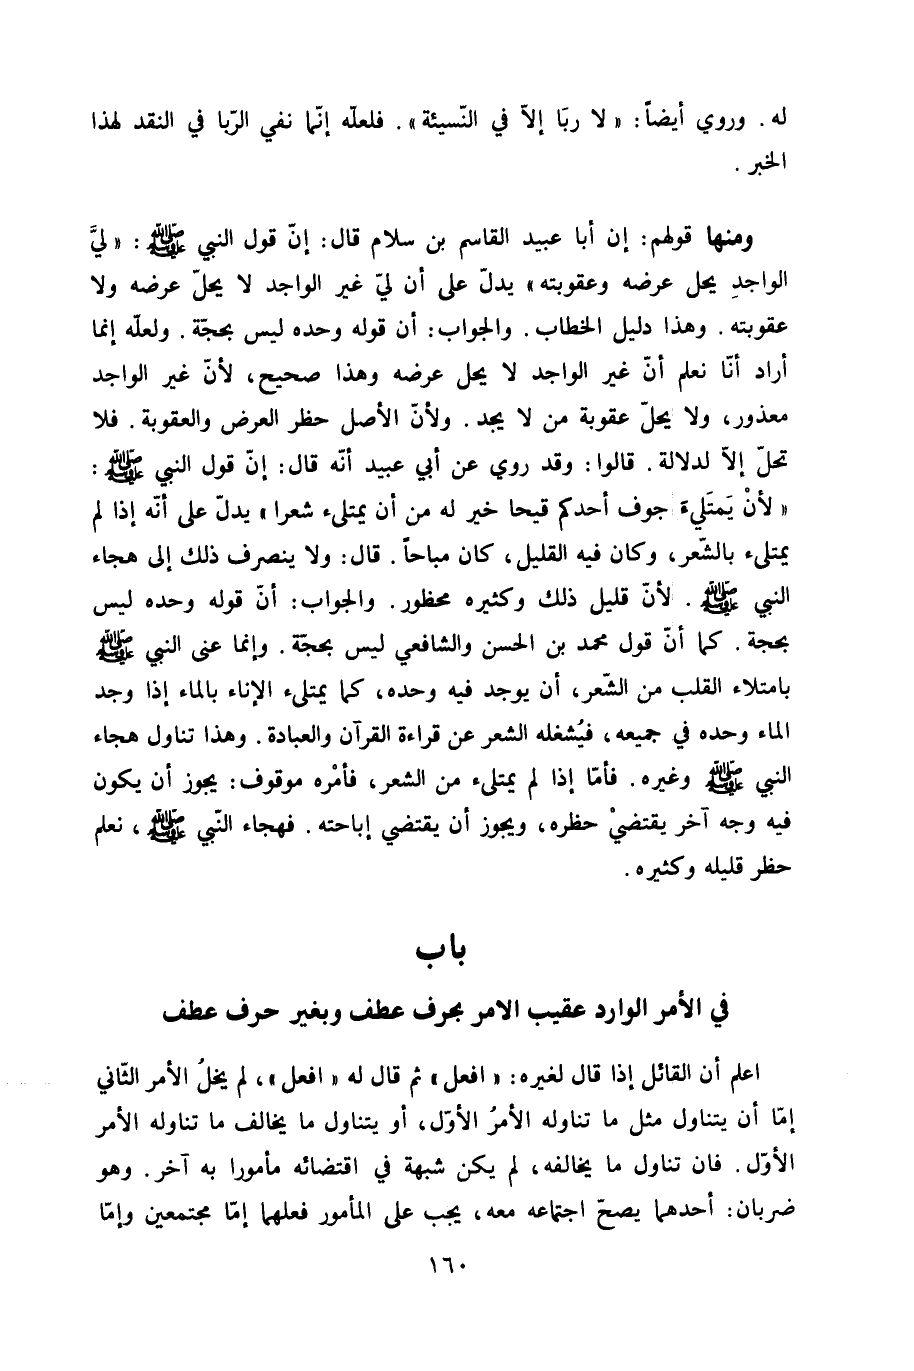 له. وروي أيضاً: « لا ربَا إلاّ في النّسيئة». فلعلّه إنّما نفي الرّبا في النقد لهذا
الخبر.
ومنها قولهم: إن أبا عبيد القاسم بن سلام قال: إنّ قول النبي ﷺ: « ليَّ
الواجدِ يحل عرضه وعقوبته» يدلّ على أن ليّ غير الواجد لا يحلّ عرضه ولا
عقوبته. وهذا دليل الخطاب. والجواب: أن قوله وحده ليس بحجّة. ولعلّه إنما
أراد أنّا نعلم أنّ غير الواجد لا يحل عرضه وهذا صحيح، لأنّ غير الواجد
معذور، ولا يحلّ عقوبة من لا يجد. ولأنّ الأصل حظر العرض والعقوبة. فلا
تحلّ إلاّ لدلالة. قالوا: وقد روي عن أبي عبيد أنّه قال: إنّ قول النبي ﷺ:
« لأنْ يَمتَليءَ جوف أحدكم قيحا خير له من أن يمتلىء شعرا» يدلّ على أنّه إذا لم
يمتلىء بالشّعر، وكان فيه القليل، كان مباحاً. قال: ولا ينصرف ذلك إلى هجاء
النبي ﷺ. لأنّ قليل ذلك وكثيره محظور. والجواب: أنّ قوله وحده ليس
بحجة. كما أنّ قول محمد بن الحسن والشافعي ليس بحجّة. وإنما عنى النبي ﷺ
بامتلاء القلب من الشّعر، أن يوجد فيه وحده، كما يمتلىء الإناء بالماء إذا وجد
الماء وحده في جميعه، فيُشغله الشعر عن قراءة القرآن والعبادة. وهذا تناول هجاء
النبي ﷺ وغيره. فأمّا إذا لم يمتلىء من الشعر، فأمْره موقوف: يجوز أن يكون
فيه وجه آخر يقتضيْ حظره، ويجوز أن يقتضي إباحته. فهجاء النّبي ﷺ، نعلم
حظر قليله وكثيره.
باب
في الأمر الوارد عقيب الامر بحرف عطف وبغير حرف عطف
اعلم أن القائل إذا قال لغيره: « افعل» ثم قال له « افعل»، لم يخلُ الأمر الثّاني
إمّا أن يتناول مثل ما تناوله الأمرُ الأوّل، أو يتناول ما يخالف ما تناوله الأمر
الأوّل. فان تناول ما يخالفه، لم يكن شبهة في اقتضائه مأمورا به آخر. وهو
ضربان: أحدهما يصحّ اجتماعه معه، يجب على المأمور فعلهما إمّا مجتمعين وإمّا
١٦٠